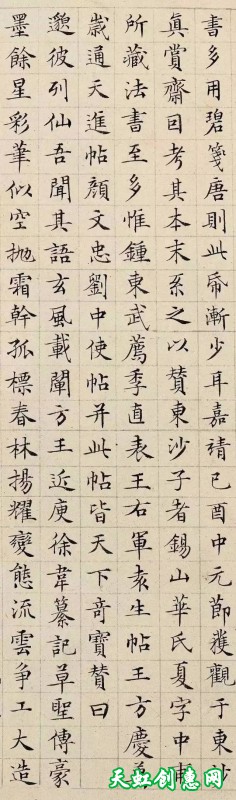 書多用碧箋唐則此帋漸少耳嘉靖己酉中元節獲觀于東沙
真賞齋囙考其本末系之以贊東沙子者錫山華氏夏字中甫
所藏法書至多惟鍾東武薦季直表王右軍袁生帖王方慶萬
歲通天進帖顏文忠劉中使帖并此帖皆天下奇寶贊曰
邈彼列仙吾聞其語玄風載闡方王近庾徐韋纂記草聖傳豪
墨餘星彩筆似空抛霜幹孤標春林揚耀變態流雲爭工大造
天虹创意网